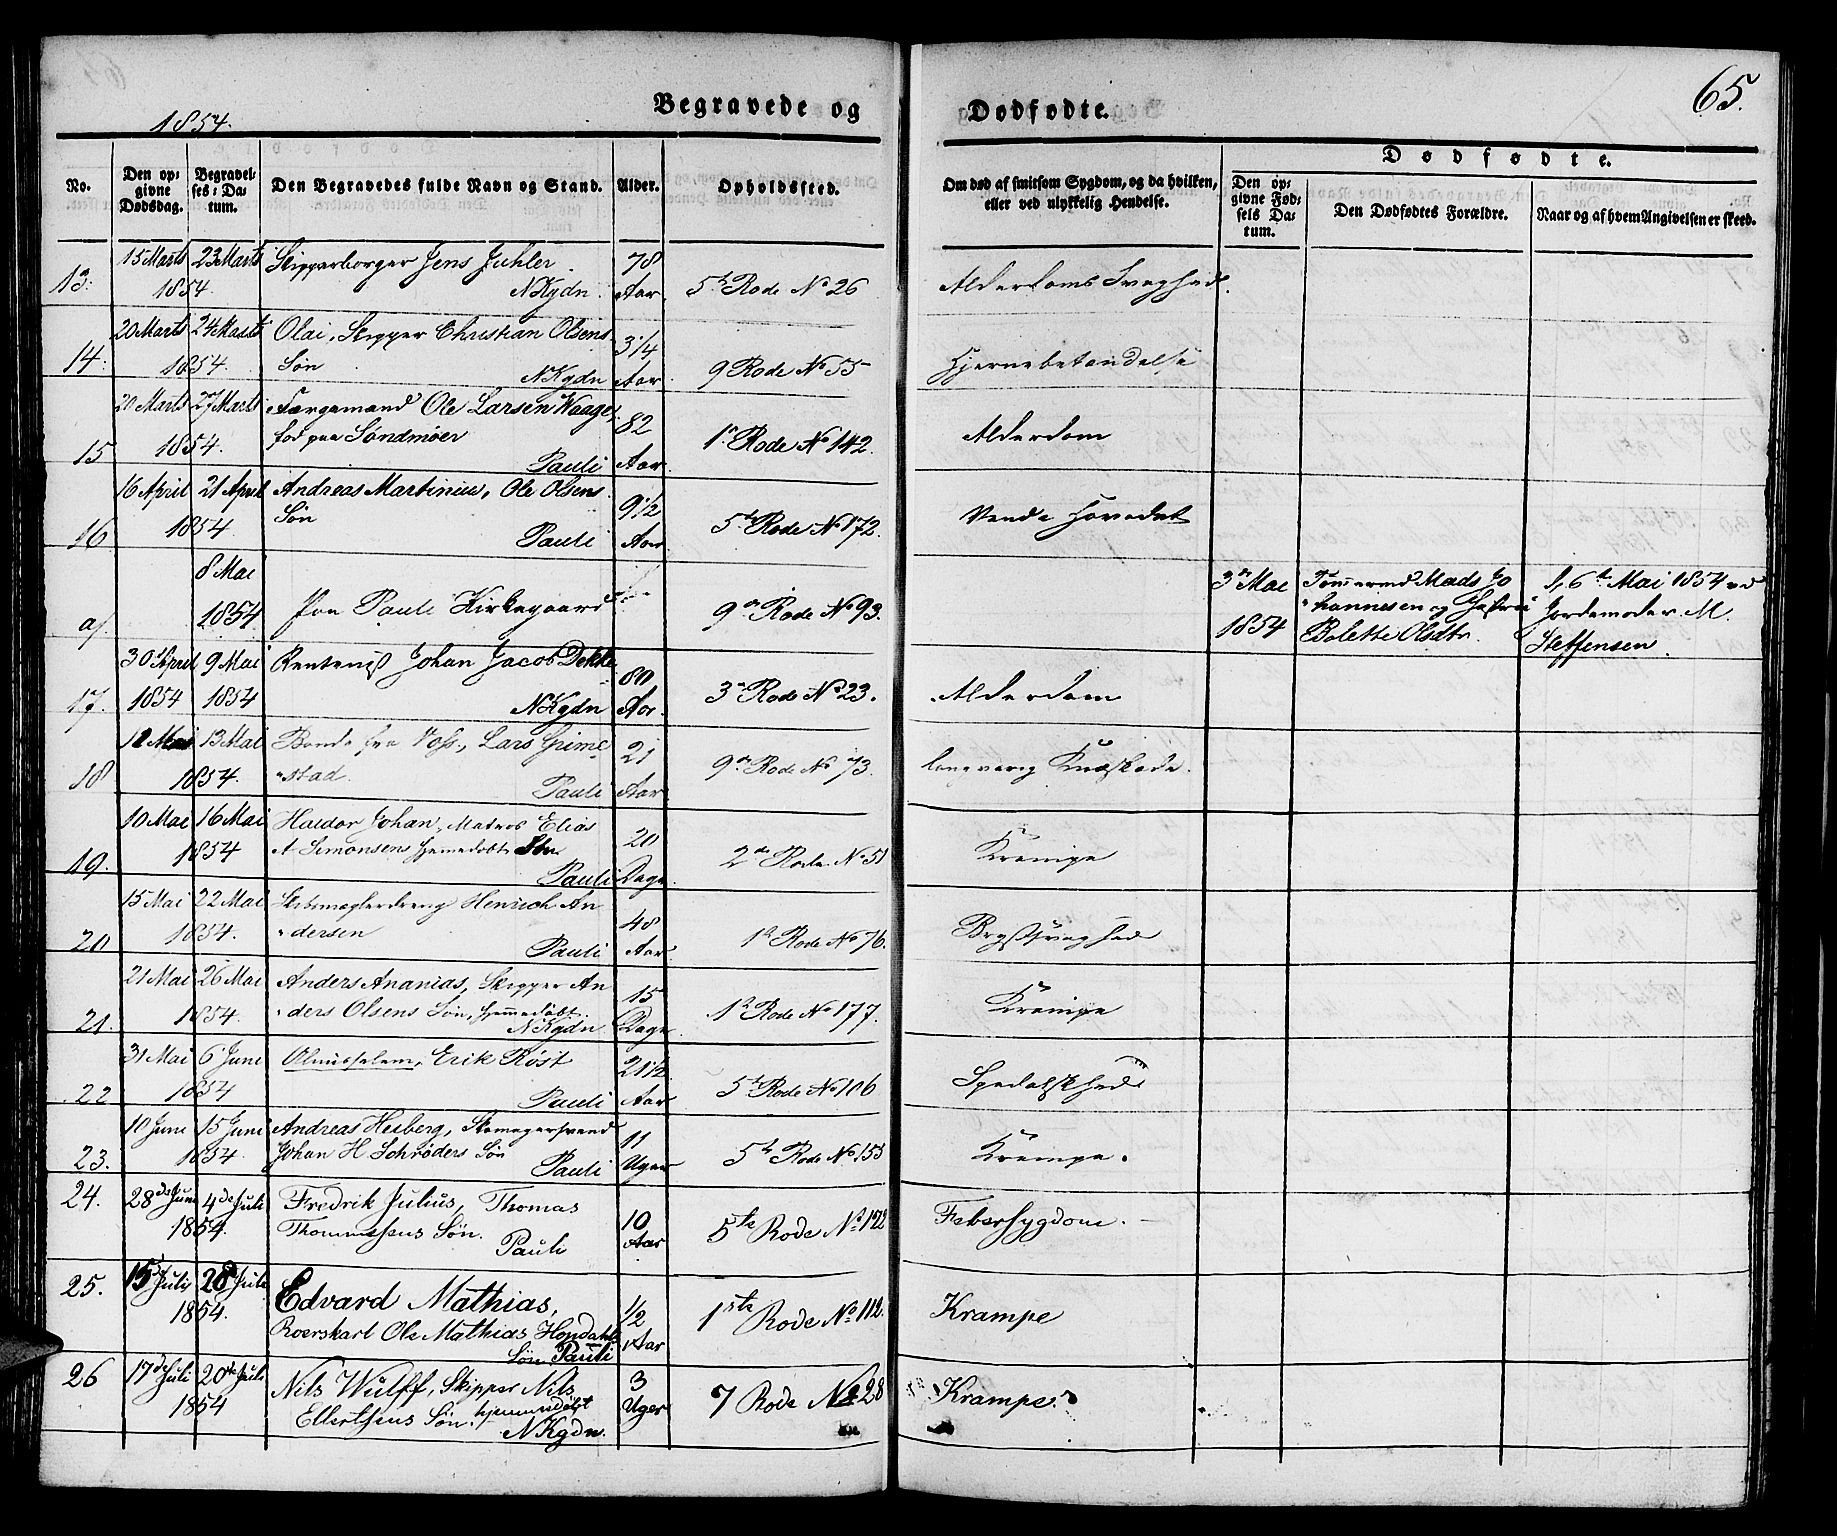 1854.
Begravede og
Dødfødte.
65.
No.
Den op=
givne
Dødsdag.
Begravel=
ses=Da=
tum.
Den Begravedes fulde Navn og Stand.
Alder.
Opholdssted.
Om død af smitsom Sygdom, og da hvilken,
eller ved ulykkelig Hendelse.
Dødfødte.
Den op=
givne Fød=
sels Da=
tum.
Den Dødfødtes Forældre.
Naar og af hvem Angivelsen er skeed.
15 Marts 23 Marts Skipperborger Jens Juhler 78
13. 1854. NKgdn. Aar. 5te Rode No 26 Alderdoms Svaghed.
20 Marts 24 Marts Olai, Skipper Christian Olsens 3/4
14. 1854. Søn NKgdn Aar. 9 Rode No 55 Hjernebetændelse
20 Marts 27 Marts Færgemand Ole Larsen Waage, 82
15 1854. fød paa Søndmøer Pauli Aar. 1ste Rode No 142. Alderdom
16 April 21 April Andreas Martinius, Ole Olsens 9 1/2
16 1854 Søn Pauli Aar 5te Rode No 172. Vand i Hovedet
8 Mai
a/. 1854 Paa Pauli Kirkegaard 9de Rode No 93.
3de Mai 1854
Tømmermd Mads Jo
hannesen og
Bolette Olsdtr.
d. 6te Mai 1854 ved
Jordemoder M.
Steffensen.
30 April 9 Mai Rentenist Johan Jacob Dekke 80
17. 1854 1854 NKgdn Aar. 3de Rode No 23. Alderdom
12 Mai 13 Mai Bonde fra Voss, Lars Grime 21
18 1854. stad. Pauli Aar. 9de Rode No 73. langvarig Knæskade.
10 Mai 16 Mai Haldor Johan, Matros Elias 20
19. 1854 A Simonsens hjemmedøbt Søn Pauli Dage. 2de Rode No 51 Krampe
15 Mai 22 Mai Skibsmæglerdreng Henrich An 48
20 1854. dersen Pauli Aar. 1ste Rode No 76. Brystsvaghed
21 Mai 26 Mai Anders Ananias, Skipper An 15
21. 1854. ders Olsens Søn, hjemmedøbt. NKgdn Dage. 1ste Rode No 177. Krampe
31 Mai 6 Juni Almisselem, Erik Røst 21 1/2
22 1854 Pauli Aar 5te Rode No 106 Spedalskhed
10 Juni 15 Juni Andreas Hesberg, Skomagersvend 11
23. 1854. Johan H Schrøders Søn Pauli Uger 5te Rode No 155 Krampe.
24. 28de Juni 4de Juli Fredrik Julius, Thomas 10
1854. Thommesens Søn. Pauli Aar 5te Rode No 172 Febersygdom.
25. 15 Juli 28 Juli Edvard Mathias, 1/2
1854. Roerskarl Ole Mathias Hondahls Aar 1ste Rode No 112. Krampe
Søn. Pauli
26 17de Juli 20de Juli Nils Wulff, Skipper Nils 3
1854 Ellertsens Søn. hjemmedøbt Uger 7 Rode No 28 Krampe
NKgdn.